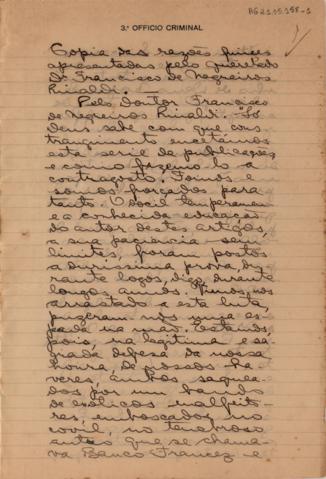 BG 21.11.198-1
3.º OFFICIO CRIMINAL
Copia das razões finaes
apresentadas pelo Querellado
Dr. Francisco de Negreiros
Rinaldi.
Pelo Doutor Francisco
de Negreiros Rinaldi. "Só
Deus sabe com que cons-
trangimento encetámos
esta serie de publicações,
e como fazemol-o a
contragosto. Fomos e
somos forçados para
tanto. O docil temperamen-
e a conhecida educação
do autor destes artigos,
a sua paciencia sem
limites, foram postos
a durissima prova, du-
rante logos, digo, durante
longos annos.
arrastado a esta luta,
puzeram-nos uma es-
pada na mão. Estamos,
pois, na legitima e sa-
grada defesa da nossa
honra, de nossos ha-
veres, ambos saquea-
dos por um bando
de exoticos malfeito-
res, emboscados no
covil, no tenebroso
antro que se chama-
va Banco Francez e